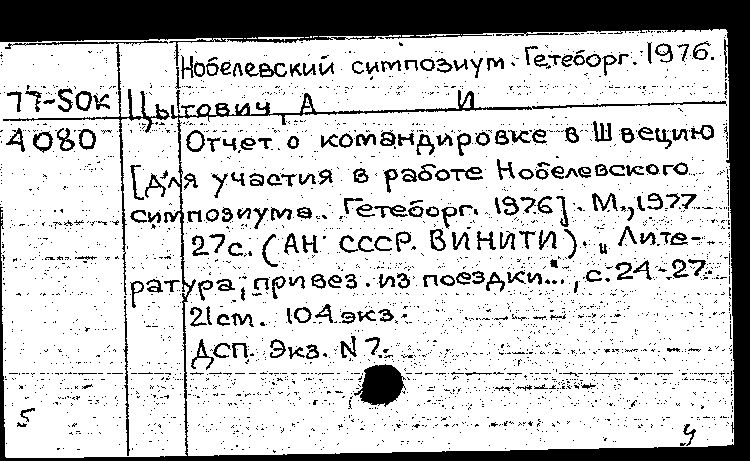 Нобелевский симпозиум. Гетеборг. 1976.
77-50к Цытович, А И
4080 Отчет о командировке в Швецию
[для участия в работе Нобелевского
симпозиума. Гетеборг. 1976]. М., 1977
27с. (АН СССР. ВИНИТИ). „Лите-
ратура, привез. из поездки...", с. 24-27.
21 см. 104 экз.
ДСП. Экз. N 7.
5
у